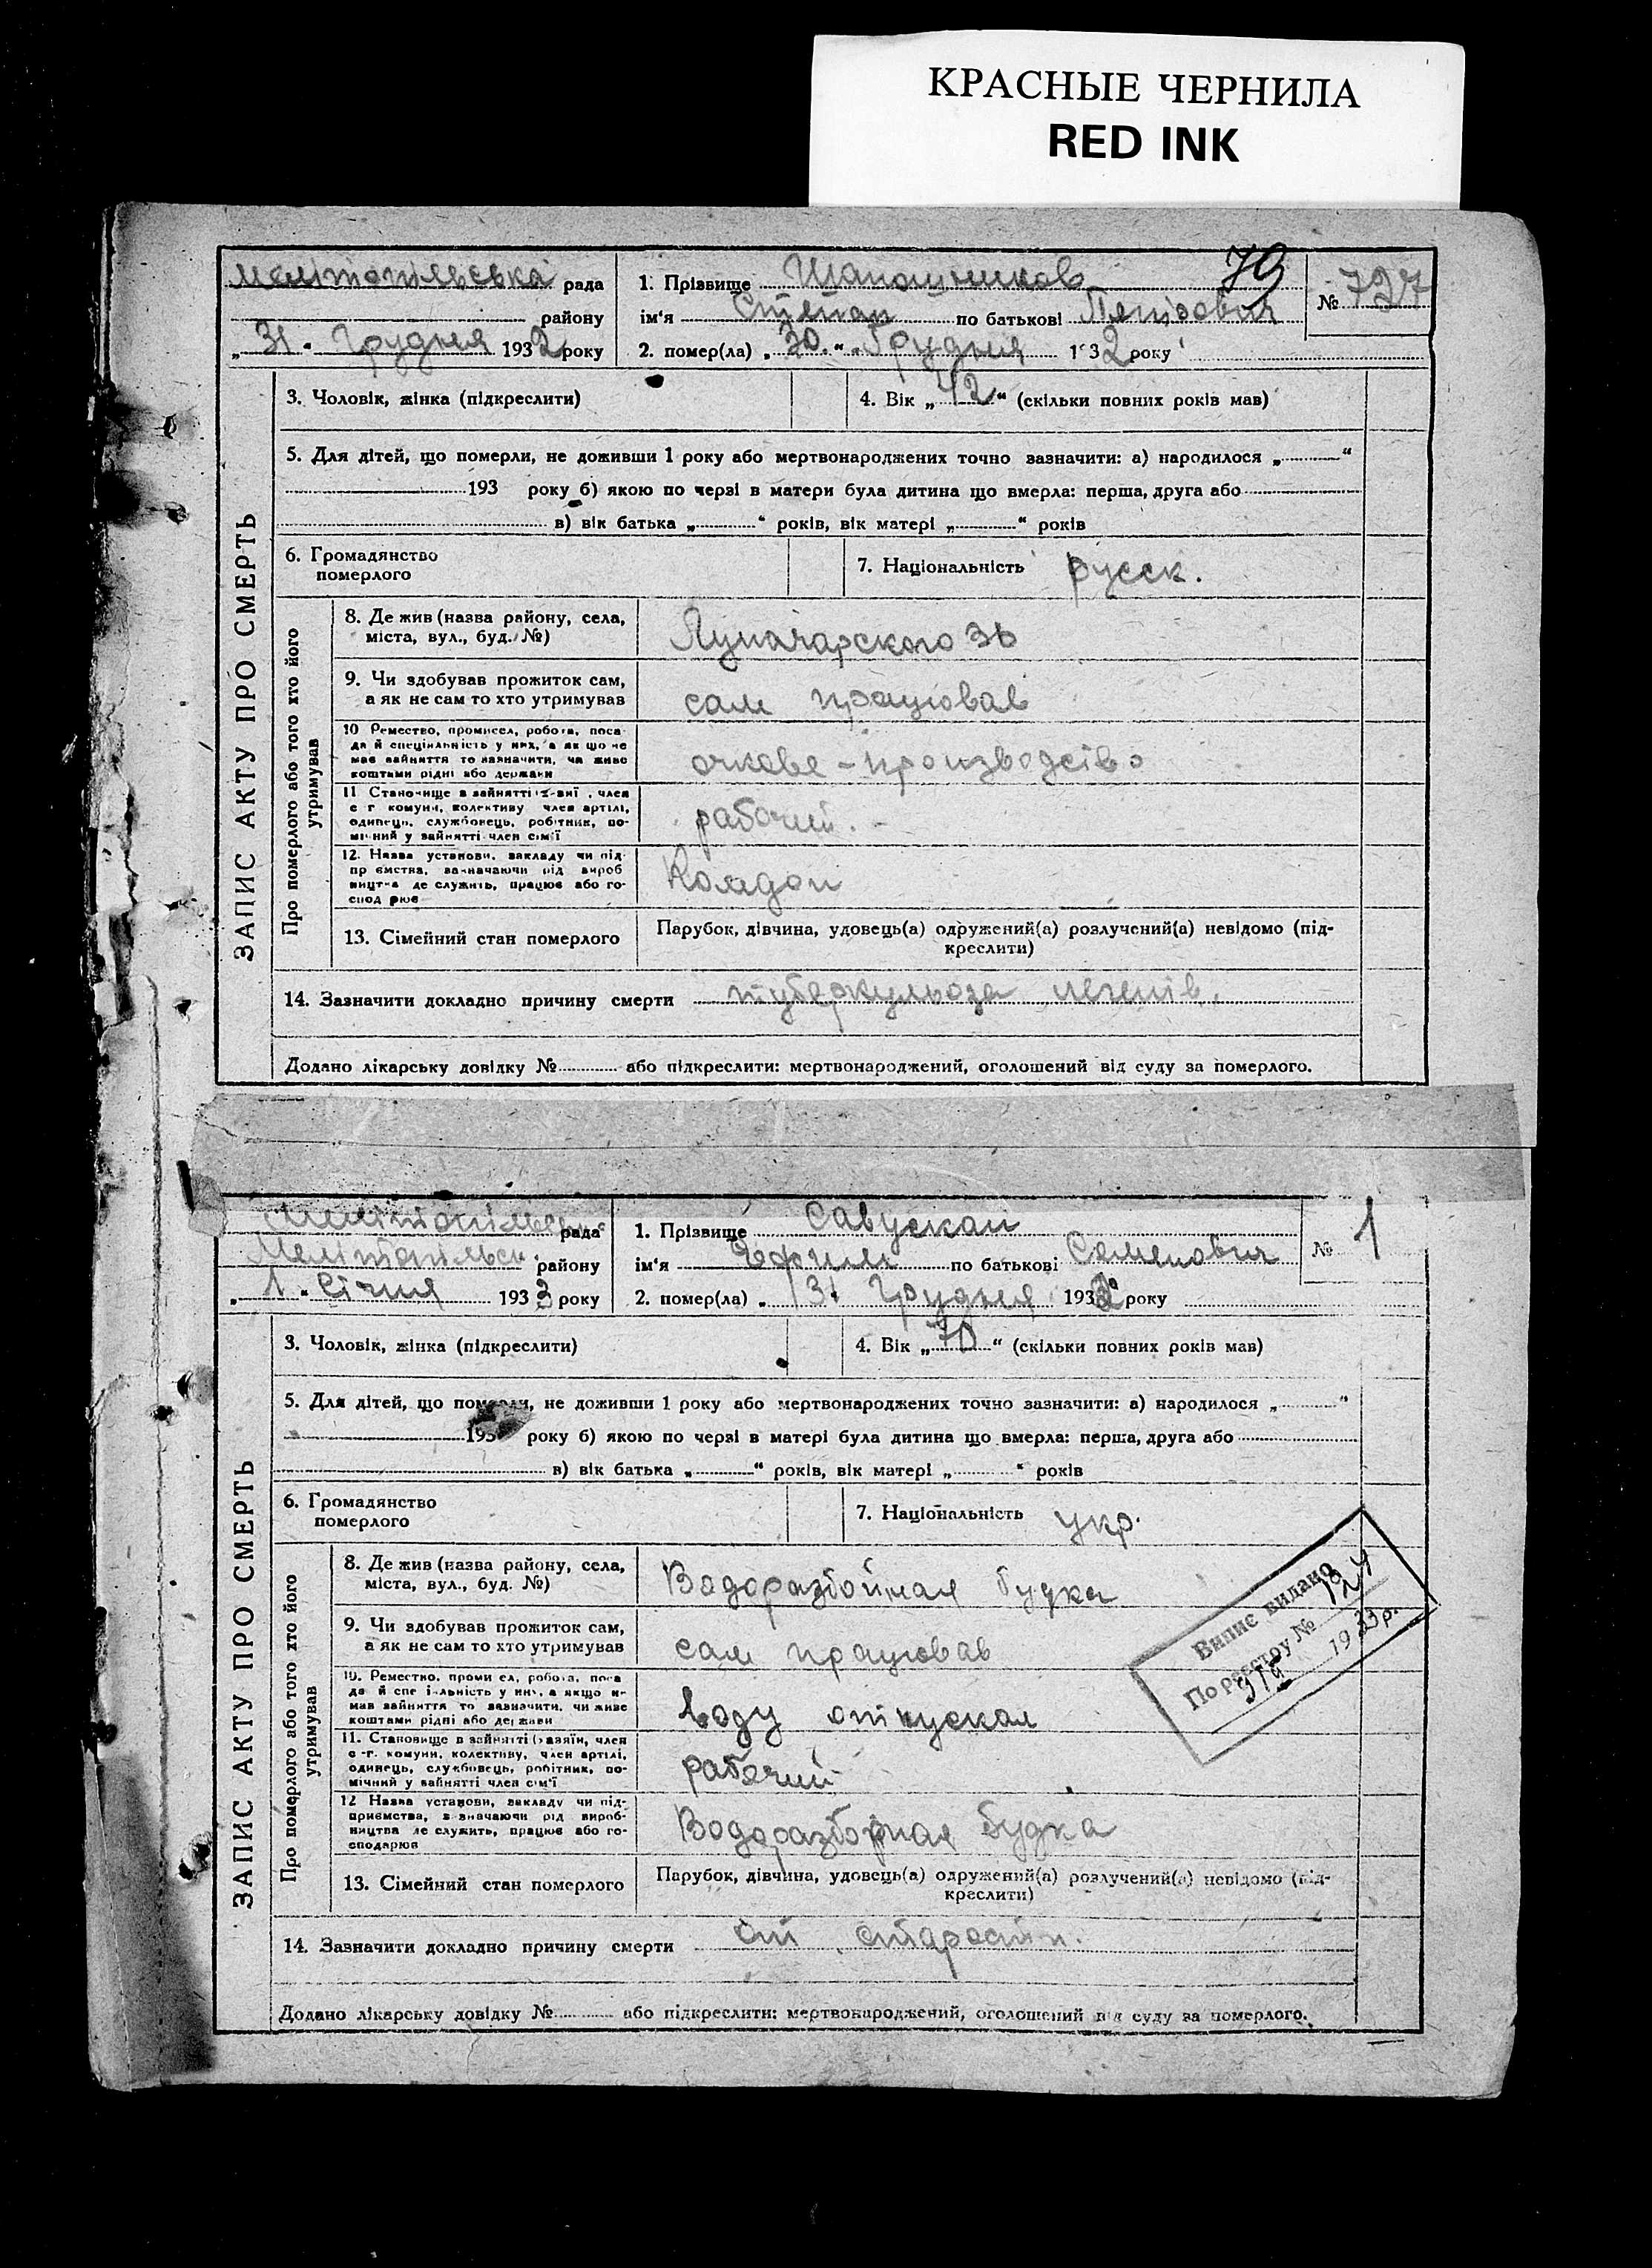 КРАСНЫЕ ЧЕРНИЛА
RED INK
79
Мелітопільська рада
району
„ 31 " Грудня 1932 року
1. Прізвище Шапошников
ім'я Степан по батькові
2. помер(ла) „ 30. " „ Грудня 1932 року
№ 727
ЗАПИС АКТУ ПРО СМЕРТЬ
3. Чоловік, жінка (підкреслити)
4. Вік „ 42 " (скільки повних років мав)
5. Для дітей, що померли, не доживши 1 року або мертвонароджених точно зазначити: а) народилося „ "
193 року б) якою по черзі в матери була дитина що вмерла: перша, друга або
в) вік батька „ " років, вік матері „ " років
6. Громадянство
померлого
7. Національність русск.
Про померлого або того хто його
утримував
8. Де жив (назва району, села,
міста, вул., буд. №)
Луначарского 36
9. Чи здобував прожиток сам,
а як не сам то хто утримував
сам працював
10 Ремество, промисел, робота, поса-
да й спеціяльність у них, а як що не
мав зайняття то зазначити, чи живе
коштами рідні або держави
очкове – производство
11 Становище в зайнятті член
с г комуни, колективу член артілі,
одинець, службовець, робітник, по-
мічний у зайнятті член сім'ї
рабочий.
12. Назва установи, закладу чи під-
приємства, зазначаючи рід вироб
ництва де служить, працює або го-
сподарює
13. Сімейний стан померлого
Парубок, дівчина, удовець(а) одружений(а) розлучений(а) невідомо (під-
креслити)
14. Зазначити докладно причину смерти туберкульоза легенів.
Додано лікарську довідку № або підкреслити: мертвонароджений, оголошений від суду за померлого.
Мелітопільська рада
Мелітопільськ. району
„ 1 " Січня 1933 року
1. Прізвище Савускан
ім'я Ефим по батькові Семенович
2. помер(ла) „ 31 Грудня 1932 року
№ 1
ЗАПИС АКТУ ПРО СМЕРТЬ
3. Чоловік, жінка (підкреслити)
4. Вік „ 70 " (скільки повних років мав)
5. Для дітей, що померли, не доживши 1 року або мертвонароджених точно зазначити: а) народилося „ "
193 року б) якою по черзі в матері була дитина що вмерла: перша, друга або
в) вік батька „ " років, вік матері „ " років
6. Громадянство
померлого
7. Національність укр.
Про померлого або того хто його
утримував
8. Де жив (назва району, села,
міста, вул., буд. №)
Водоразбойная будка
9. Чи здобував прожиток сам,
а як не сам то хто утримував
сам працював
10. Ремество, промисел, робота, поса
да й спеціяльність у них, а якщо не
мав зайняття то зазначити, чи живе
коштами рідні або держави
воду отпускал
11. Становище в зайнятті (хазяїн, член
с.-г. комуни, колективу, член артілі,
одинець, службовець, робітник, по-
мічний у зайнятті член сім'ї
рабочий
12 Назва установи, закладу чи під-
приємства, зазначаючи рід вироб-
ництва де служить, працює або го-
сподарює
Водоразборная будка
Випис видано
По реєстру № 1824
1933 р.
13. Сімейний стан померлого
Парубок, дівчина, удовець(а) одружений(а) розлучений(а) невідомо (під-
креслити)
14. Зазначити докладно причину смерти от старости.
Додано лікарську довідку № або підкреслити: мертвонароджений, оголошений від суду за померлого.